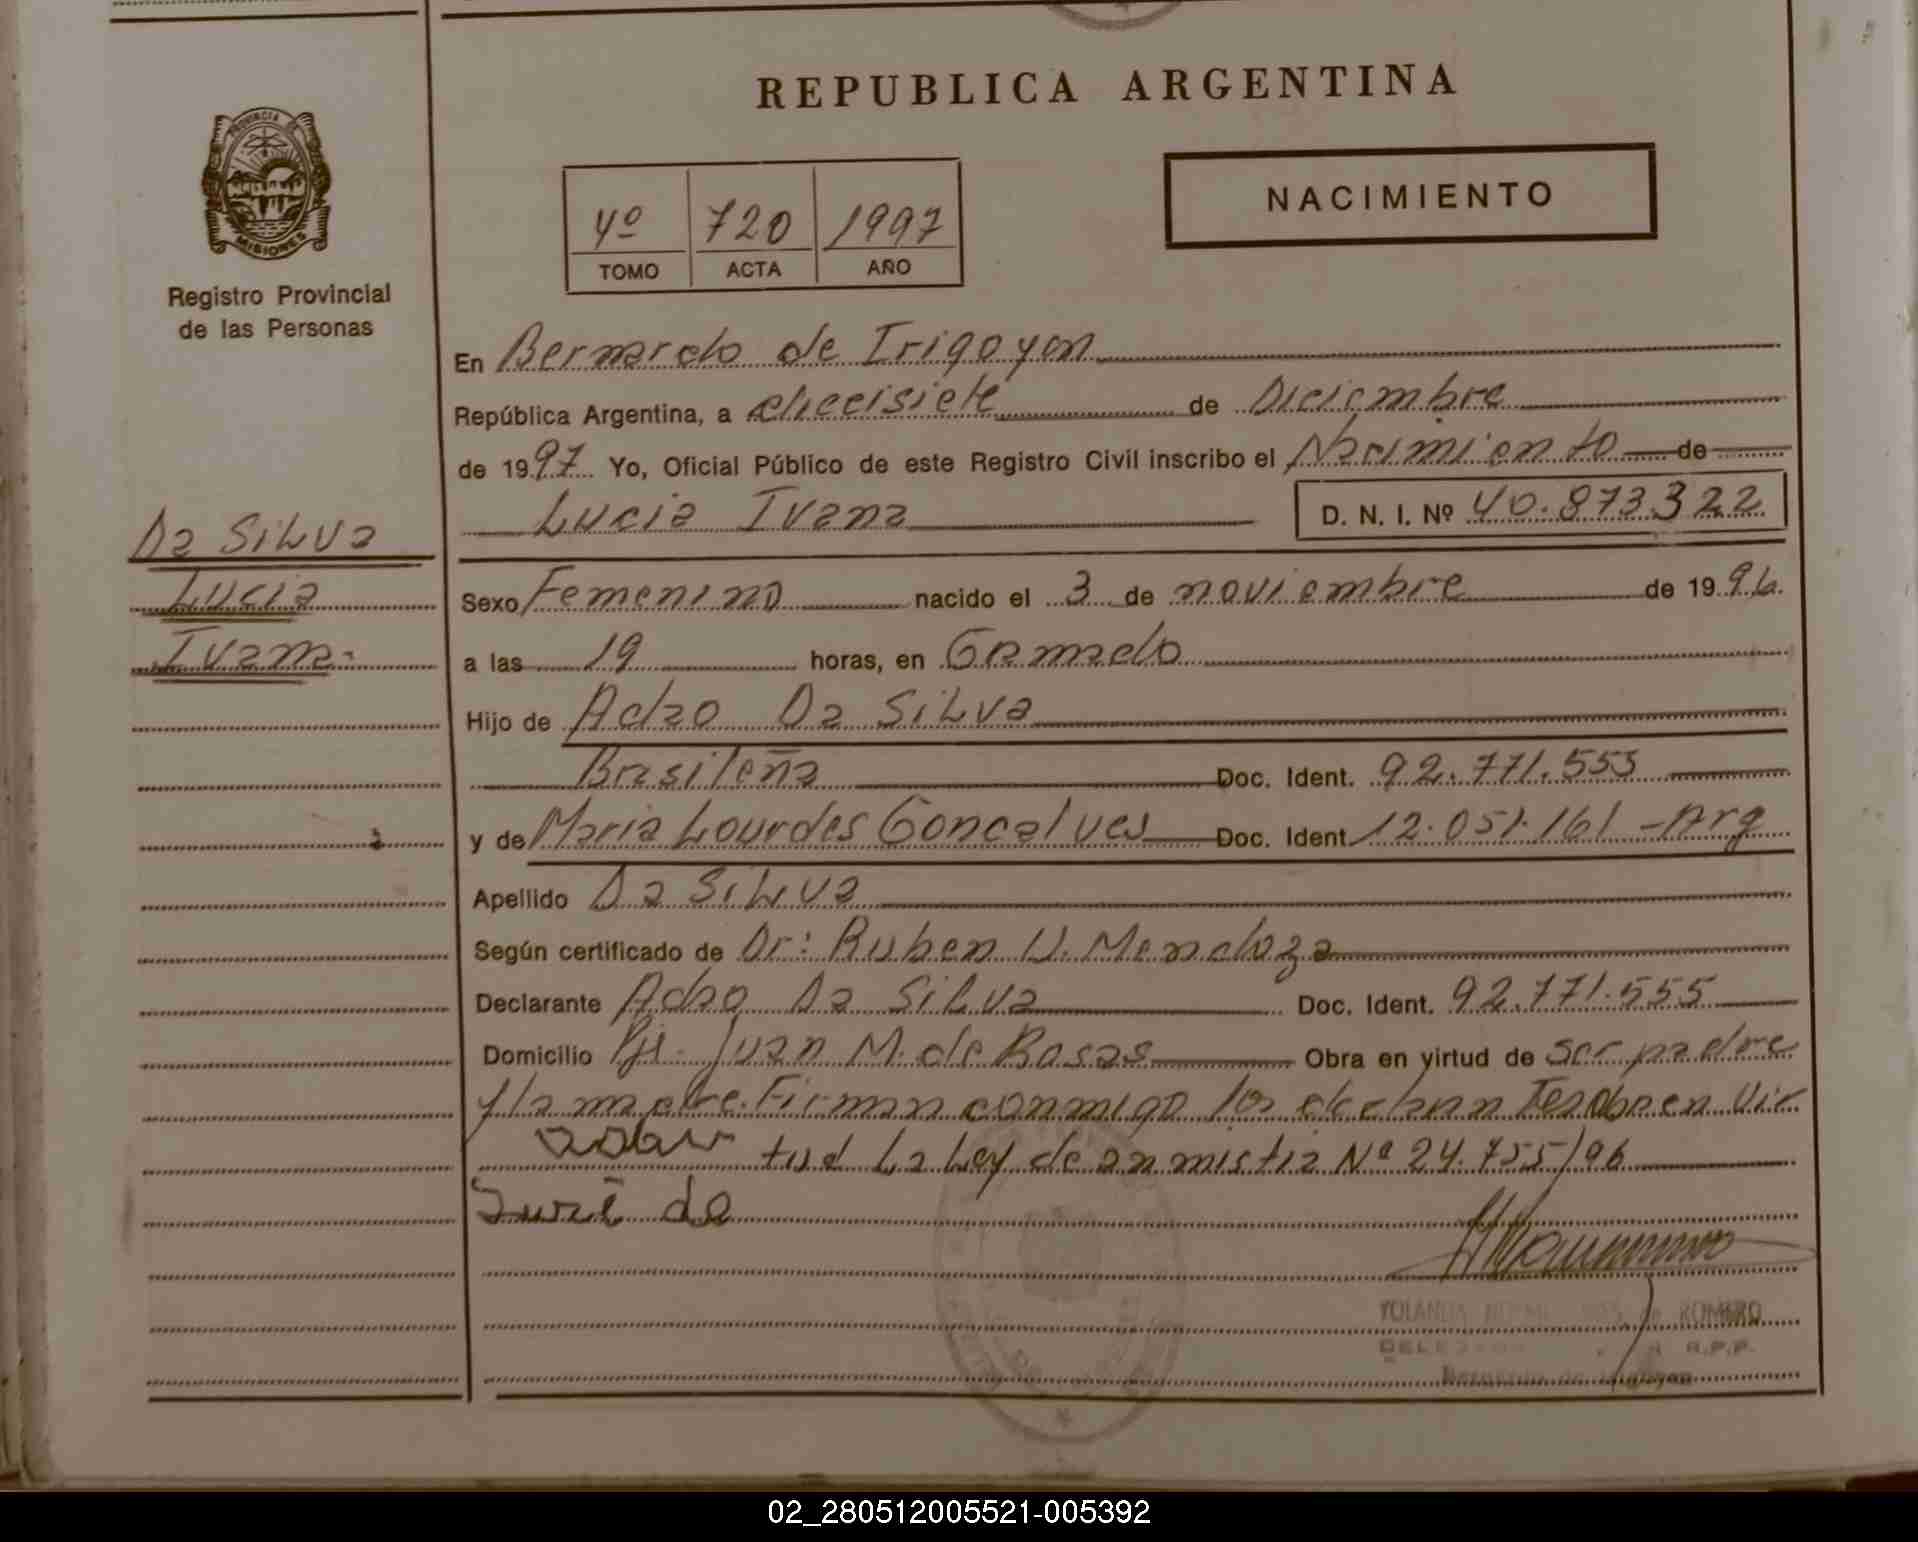 REPUBLICA ARGENTINA
PROVINCIA DE
MISIONES
Registro Provincial
de las Personas
NACIMIENTO
4º 720 1997
TOMO ACTA AÑO
En Bernardo de Irigoyen
República Argentina, a diecisiete de Diciembre
de 1997 Yo, Oficial Público de este Registro Civil inscribo el Nacimiento de
Lucia Ivana D. N. I. Nº 40.873.322
Da Silva
Lucia
Ivana
Sexo Femenino nacido el 3 de noviembre de 1996.
a las 19 horas, en Gramado
Hijo de Adao Da Silva
Brasileña Doc. Ident. 92.771.555
y de Maria Lourdes Goncalves Doc. Ident 12.051.161 - Arg
Apellido Da Silva
Según certificado de Dr: Ruben Mendoza
Declarante Adao Da Silva Doc. Ident. 92.771.555
Domicilio Juan M. de Rosas Obra en virtud de ser padre
y la madre. Firman conmigo los en Vir
tud La Ley de anmistia Nº 24.755/96
YOLANDA de ROMERO
R.P.P.
02_280512005521-005392